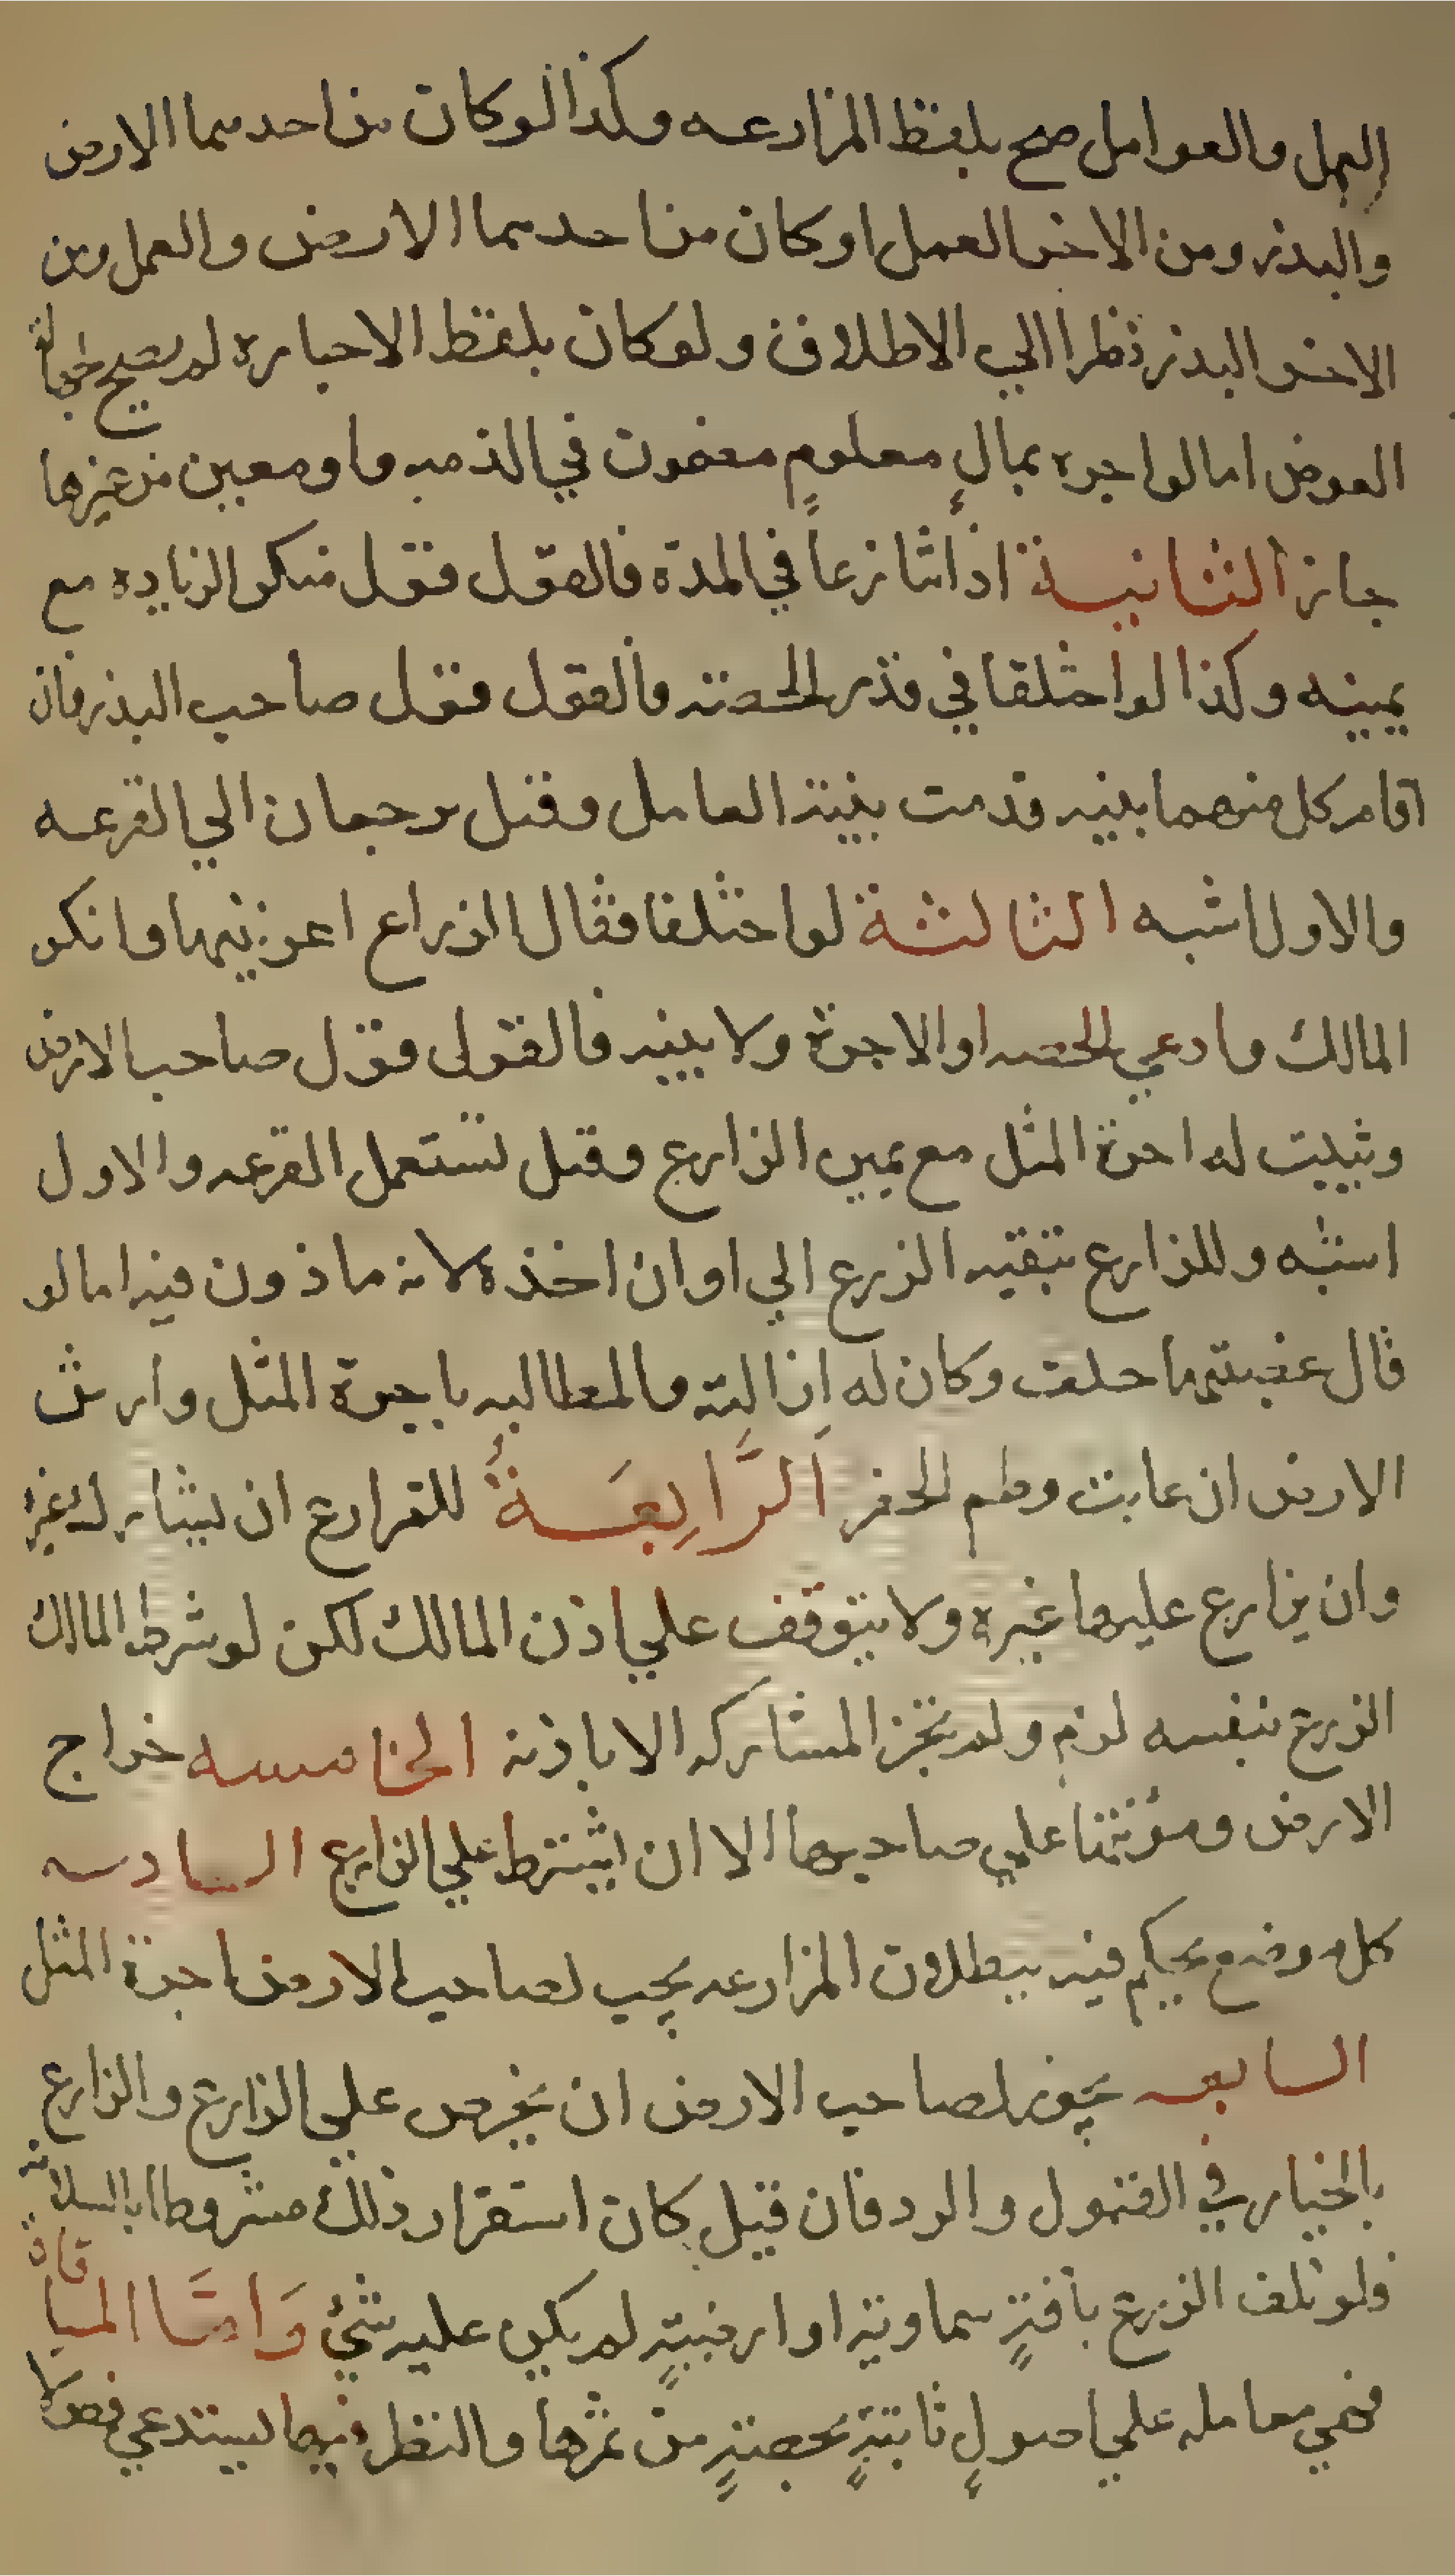 العمل والعوامل صح بلفظ المزارعه وكذا لو كان من احدهما الارض
والبذر ومن الاخر العمل او كان من احدهما الارض والعمل ومن
الاخر البذر نظرا الي الاطلاق ولو كان بلفظ الاجاره لم يصح لجهالة
العوض اما لو اجره بمالٍ معلومٍ مضمون في الذمه او معين من غيرها
جاز الثانية اذا تنازعا في المدة فالقول قول منكر الزياده مع
يمينه وكذا لو اختلفا في قدر الحصة فالقول قول صاحب البذر فان
اقام كل منهما بينه قدمت بينة العامل وقيل يرجعان الي القرعه
والاول اشبه الثالثة لو اختلفا فقال الزراع اعرتنيها وانكر
المالك وادعي الحصه او الاجرة ولا بينه فالقول قول صاحب الارض
وتثبت له اجرة المثل مع يمين الزارع وقيل تستعمل القرعه والاول
اشبه وللزارع تبقيه الزرع الي اوان اخذه لانه ماذون فيه اما لو
قال غصبتنيها حلف وكان له ازالته والمطالبه باجرة المثل وارش
الارض ان عابت وطم الحفر اَلرَّابِعَةُ للمزارع ان يشارك غيره
وان يزارع عليها غيره ولا يتوقف علي اذن المالك لكن لو شرط المالك
الزرع بنفسه لزم ولم تجز المشاركه الا باذنه الخامسه خراج
الارض ومؤنتها علي صاحبها الا ان يشترط علي الزارع السادسه
كل موضع يحكم فيه ببطلان المزارعه يجب لصاحب الارض اجرة المثل
السابعه يجوز لصاحب الارض ان يخرص علي الزارع والزارع
بالخيار في القبول والرد فان قبل كان استقرار ذلك مشروطا بالسلامه
فلو تلف الزرع بآفةٍ سماوية او ارضيةٍ لم يكن عليه شئ وَامَّا المساقاة
فهي معامله علي اصولٍ ثابتةٍ بحصةٍ من ثمرها والنظر فيها يستدعي فصولا